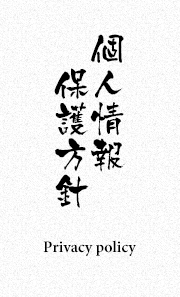 個人情報
保護方針
Privacy policy